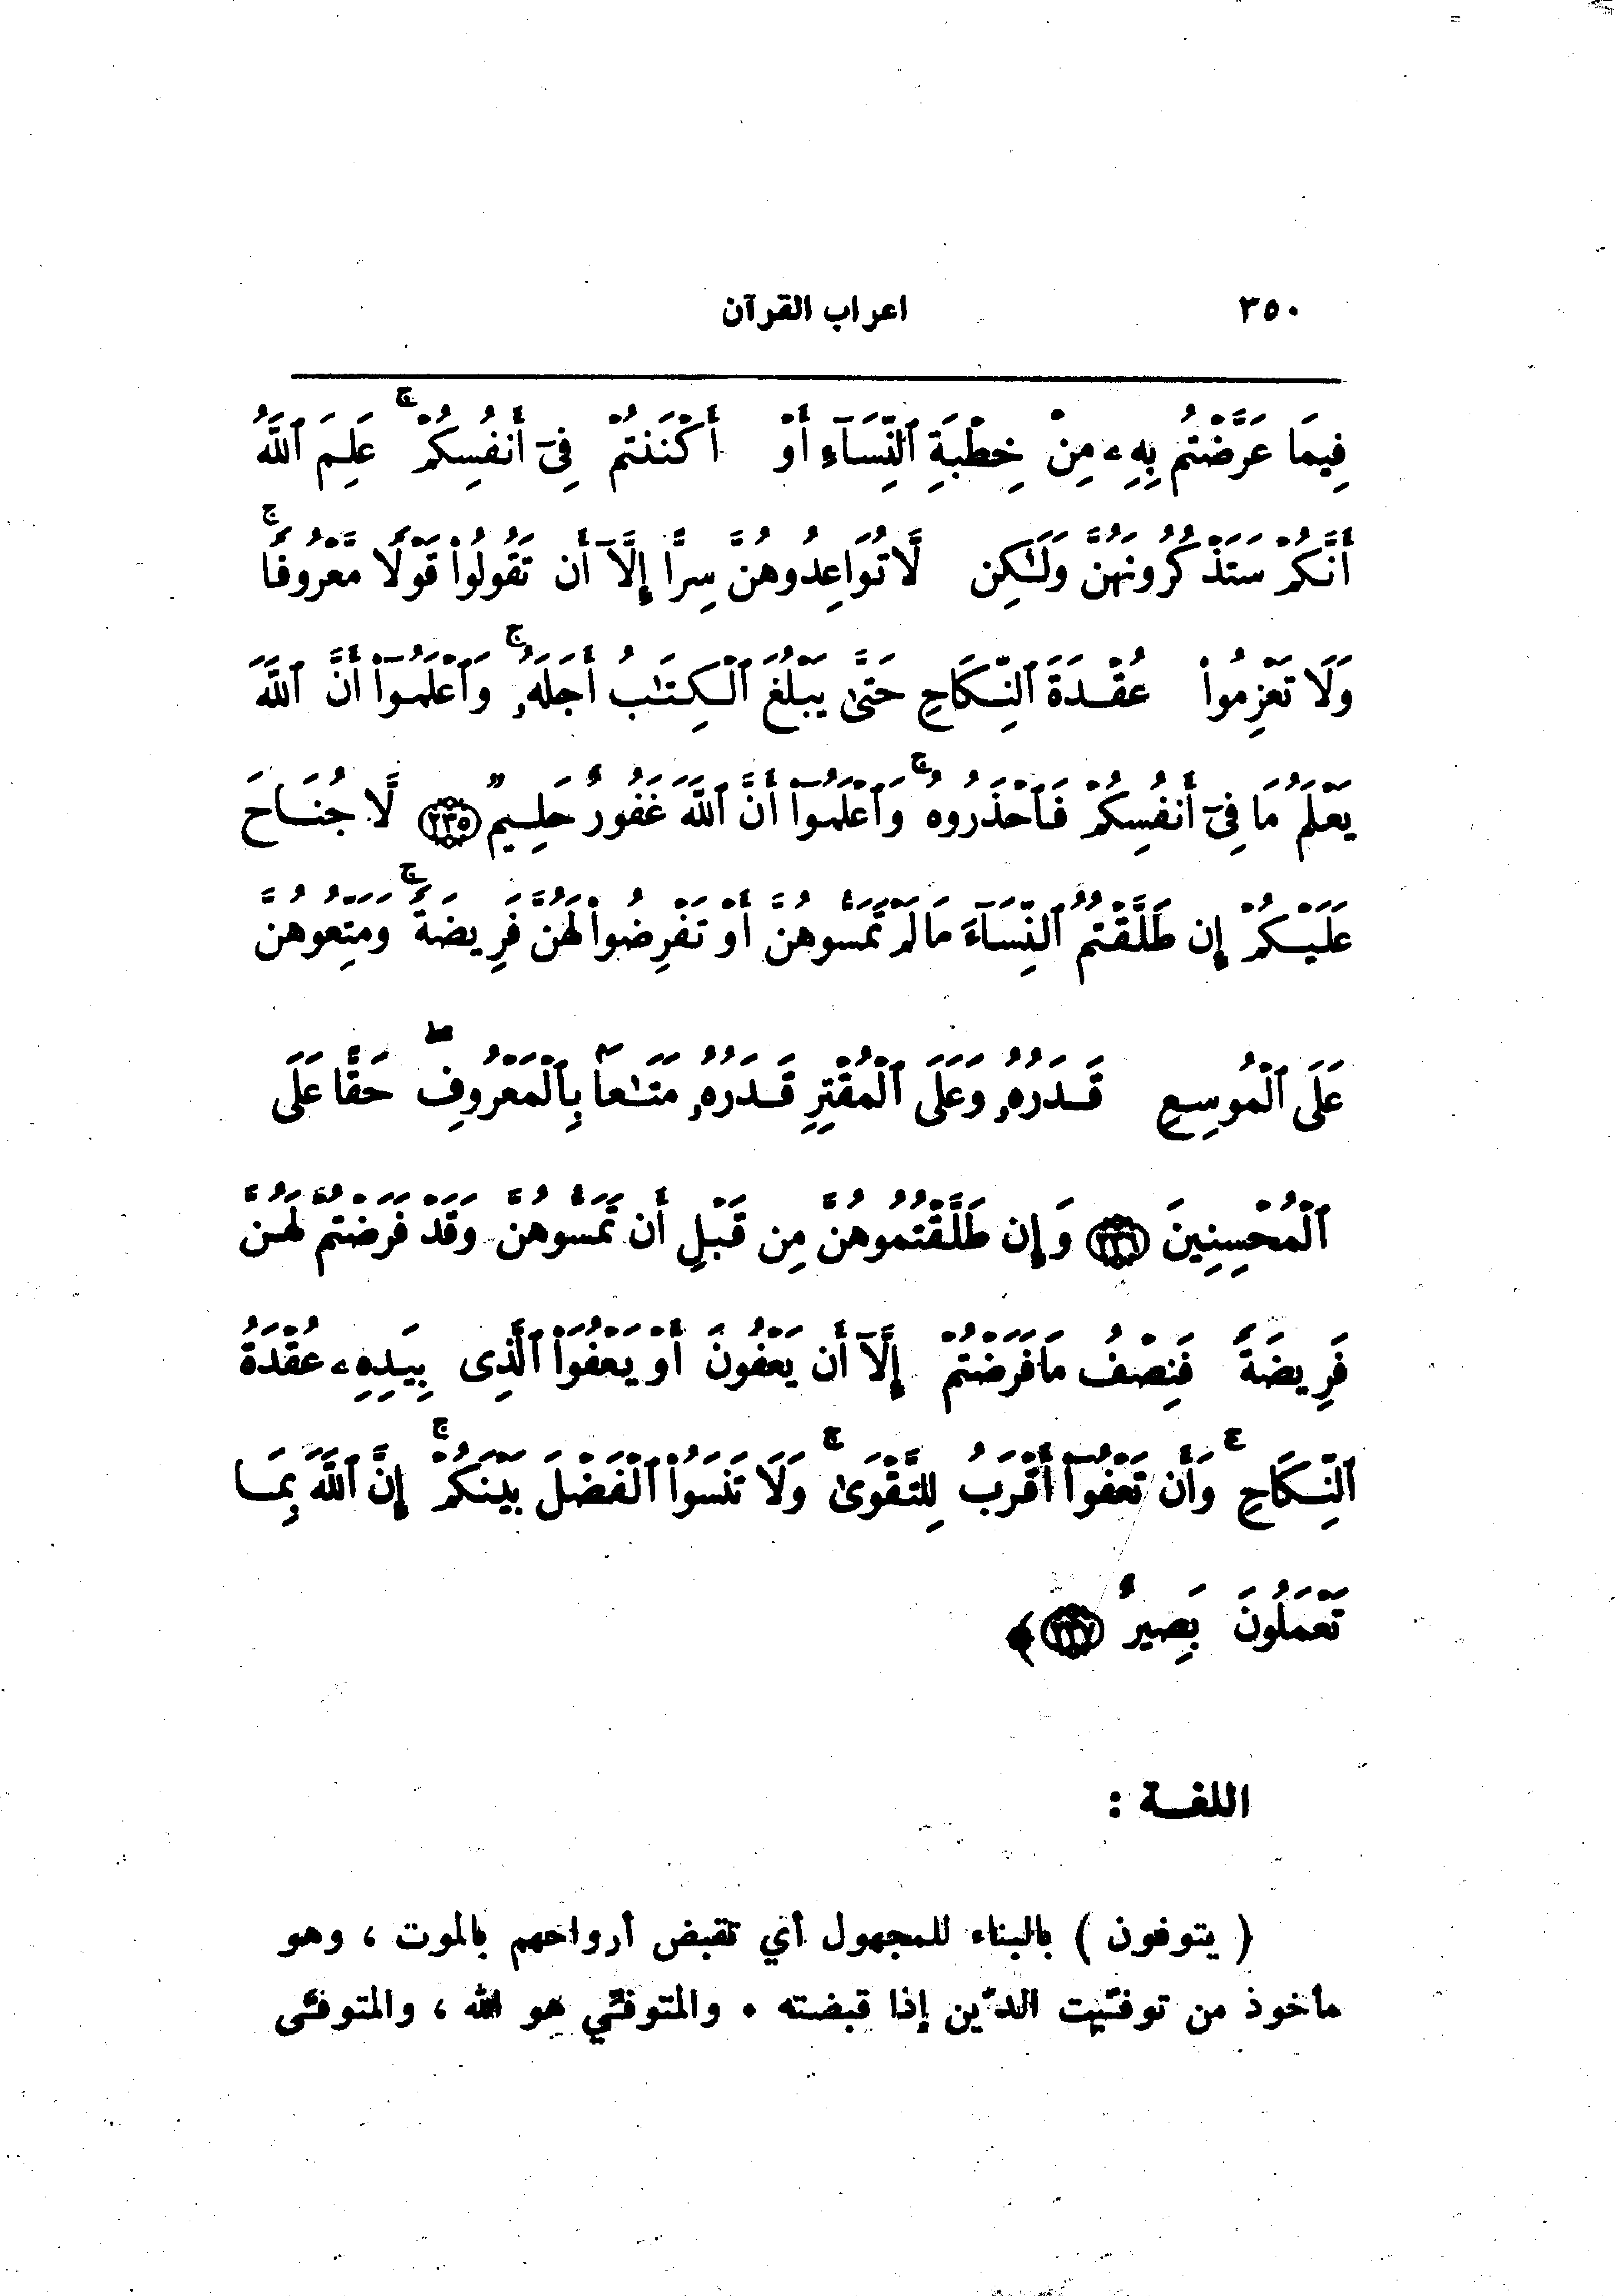 ٣٥٠ اعراب القرآن
فِيمَا عَرَّضْتُم بِهِۦ مِنْ خِطْبَةِ ٱلنِّسَآءِ أَوْ أَكْنَنتُمْ فِىٓ أَنفُسِكُمْ ۚ عَلِمَ ٱللَّهُ
أَنَّكُمْ سَتَذْكُرُونَهُنَّ وَلَـٰكِن لَّا تُوَاعِدُوهُنَّ سِرًّا إِلَّآ أَن تَقُولُوا۟ قَوْلًا مَّعْرُوفًا ۚ
وَلَا تَعْزِمُوا۟ عُقْدَةَ ٱلنِّكَاحِ حَتَّىٰ يَبْلُغَ ٱلْكِتَـٰبُ أَجَلَهُۥ ۚ وَٱعْلَمُوٓا۟ أَنَّ ٱللَّهَ
يَعْلَمُ مَا فِىٓ أَنفُسِكُمْ فَٱحْذَرُوهُ ۚ وَٱعْلَمُوٓا۟ أَنَّ ٱللَّهَ غَفُورٌ حَلِيمٌ ٢٣٥ لَّا جُنَاحَ
عَلَيْكُمْ إِن طَلَّقْتُمُ ٱلنِّسَآءَ مَا لَمْ تَمَسُّوهُنَّ أَوْ تَفْرِضُوا۟ لَهُنَّ فَرِيضَةً ۚ وَمَتِّعُوهُنَّ
عَلَى ٱلْمُوسِعِ قَدَرُهُۥ وَعَلَى ٱلْمُقْتِرِ قَدَرُهُۥ مَتَـٰعًۢا بِٱلْمَعْرُوفِ ۖ حَقًّا عَلَى
ٱلْمُحْسِنِينَ ٢٣٦ وَإِن طَلَّقْتُمُوهُنَّ مِن قَبْلِ أَن تَمَسُّوهُنَّ وَقَدْ فَرَضْتُمْ لَهُنَّ
فَرِيضَةً فَنِصْفُ مَا فَرَضْتُمْ إِلَّآ أَن يَعْفُونَ أَوْ يَعْفُوَا۟ ٱلَّذِى بِيَدِهِۦ عُقْدَةُ
ٱلنِّكَاحِ ۚ وَأَن تَعْفُوٓا۟ أَقْرَبُ لِلتَّقْوَىٰ ۚ وَلَا تَنسَوُا۟ ٱلْفَضْلَ بَيْنَكُمْ ۚ إِنَّ ٱللَّهَ بِمَا
تَعْمَلُونَ بَصِيرٌ ٢٣٧ ﴾
اللغـة :
( يتوفون ) بالبناء للمجهول أي تقبض أرواحهم بالموت ، وهو
مأخوذ من توفّيت الدّين إذا قبضته . والمتوفّي هو الله ، والمتوفّى